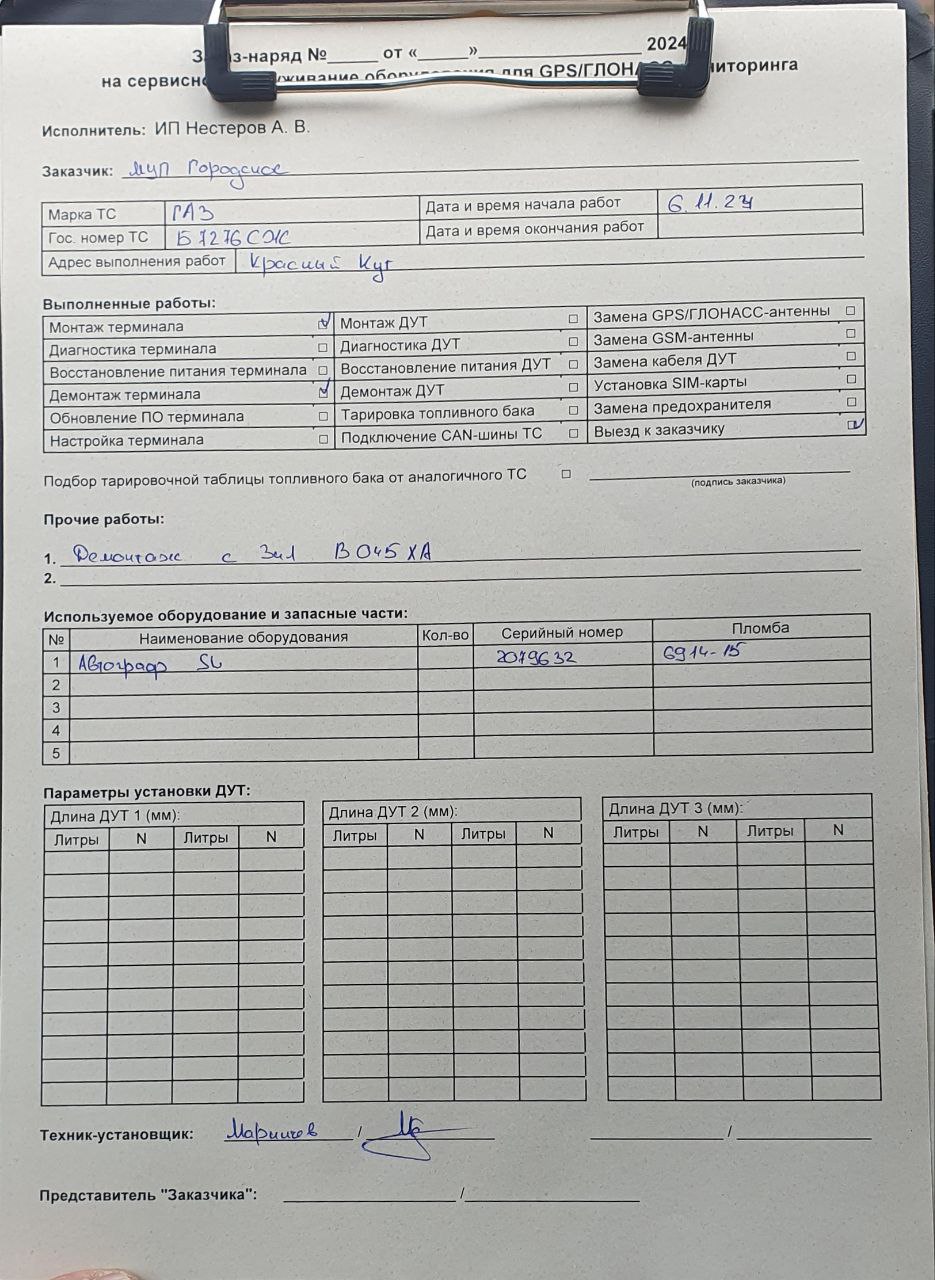 Заказ-наряд №_____ от «_____»________________ 2024
на сервисное обслуживание оборудования для GPS/ГЛОНАСС мониторинга
Исполнитель: ИП Нестеров А. В.
Заказчик: МУП Городское
Марка ТС ГАЗ Дата и время начала работ 6.11.24
Гос. номер ТС Б7276СЖ Дата и время окончания работ
Адрес выполнения работ Красный Кут
Выполненные работы:
Монтаж терминала ☑ Монтаж ДУТ ☐ Замена GPS/ГЛОНАСС-антенны ☐
Диагностика терминала ☐ Диагностика ДУТ ☐ Замена GSM-антенны ☐
Восстановление питания терминала ☐ Восстановление питания ДУТ ☐ Замена кабеля ДУТ ☐
Демонтаж терминала ☑ Демонтаж ДУТ ☐ Установка SIM-карты ☐
Обновление ПО терминала ☐ Тарировка топливного бака ☐ Замена предохранителя ☐
Настройка терминала ☐ Подключение CAN-шины ТС ☐ Выезд к заказчику ☑
Подбор тарировочной таблицы топливного бака от аналогичного ТС ☐
(подпись заказчика)
Прочие работы:
1. Демонтаж с Зил В045ХА
2.
Используемое оборудование и запасные части:
№ Наименование оборудования Кол-во Серийный номер Пломба
1 Автограф SL 2079632 6914-15
2
3
4
5
Параметры установки ДУТ:
Длина ДУТ 1 (мм): Длина ДУТ 2 (мм): Длина ДУТ 3 (мм):
Литры N Литры N Литры N Литры N Литры N Литры N
Техник-установщик: Маричев /
Представитель "Заказчика": /